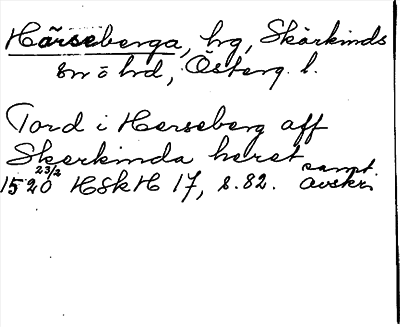 Härseberga, hg, Skärkinds
sn o hd, Österg. l.
Tord i Herseberg aff
Skerkinda heret
1520 23/2 HSkH 17, s. 82. samt. avskr.